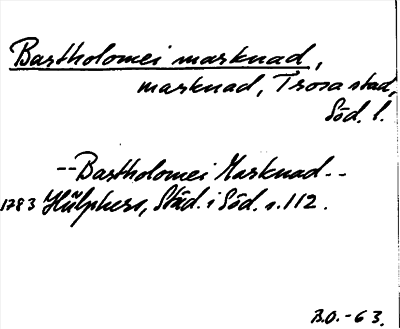 Bartholomei marknad,
marknad, Trosa stad,
Söd. l.
--Bartholomei Marknad--
1783 Hülphers, Städ. i Söd. s. 112.
B.O.-63.